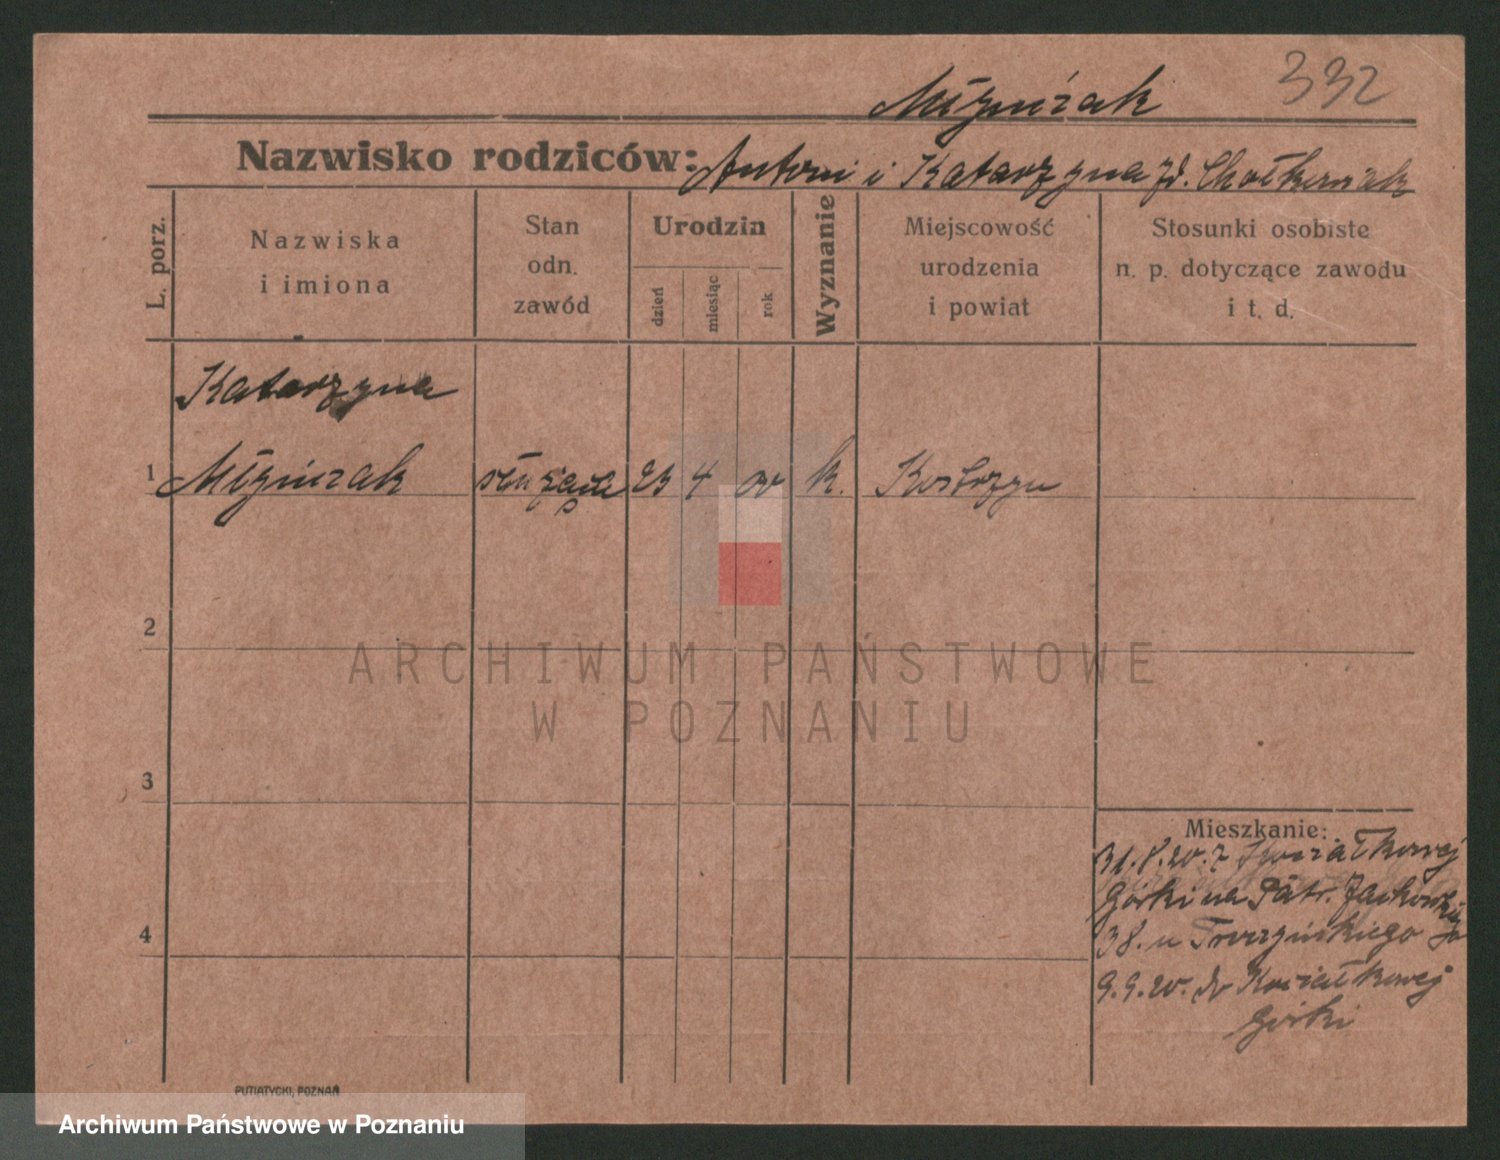 332
Młyńczak
Nazwisko rodziców: Antoni i Katarzyna zd.
L. porz.
Nazwiska
i imiona
Stan
odn.
zawód
Urodzin
dzień
miesiąc
rok
Wyznanie
Miejscowość
urodzenia
i powiat
Stosunki osobiste
n. p. dotyczące zawodu
i t. d.
Katarzyna
1 Młyńczak służąca 23 4 00 k. Kostrzyn
2
3
4
Mieszkanie:
31.8.20. z
Górki na Patr. Jackowskiego
38. u
9.9.20. do Kowalkowej
Górki
ARCHIWUM PAŃSTWOWE
W POZNANIU
PUTIATYCKI, POZNAŃ
Archiwum Państwowe w Poznaniu